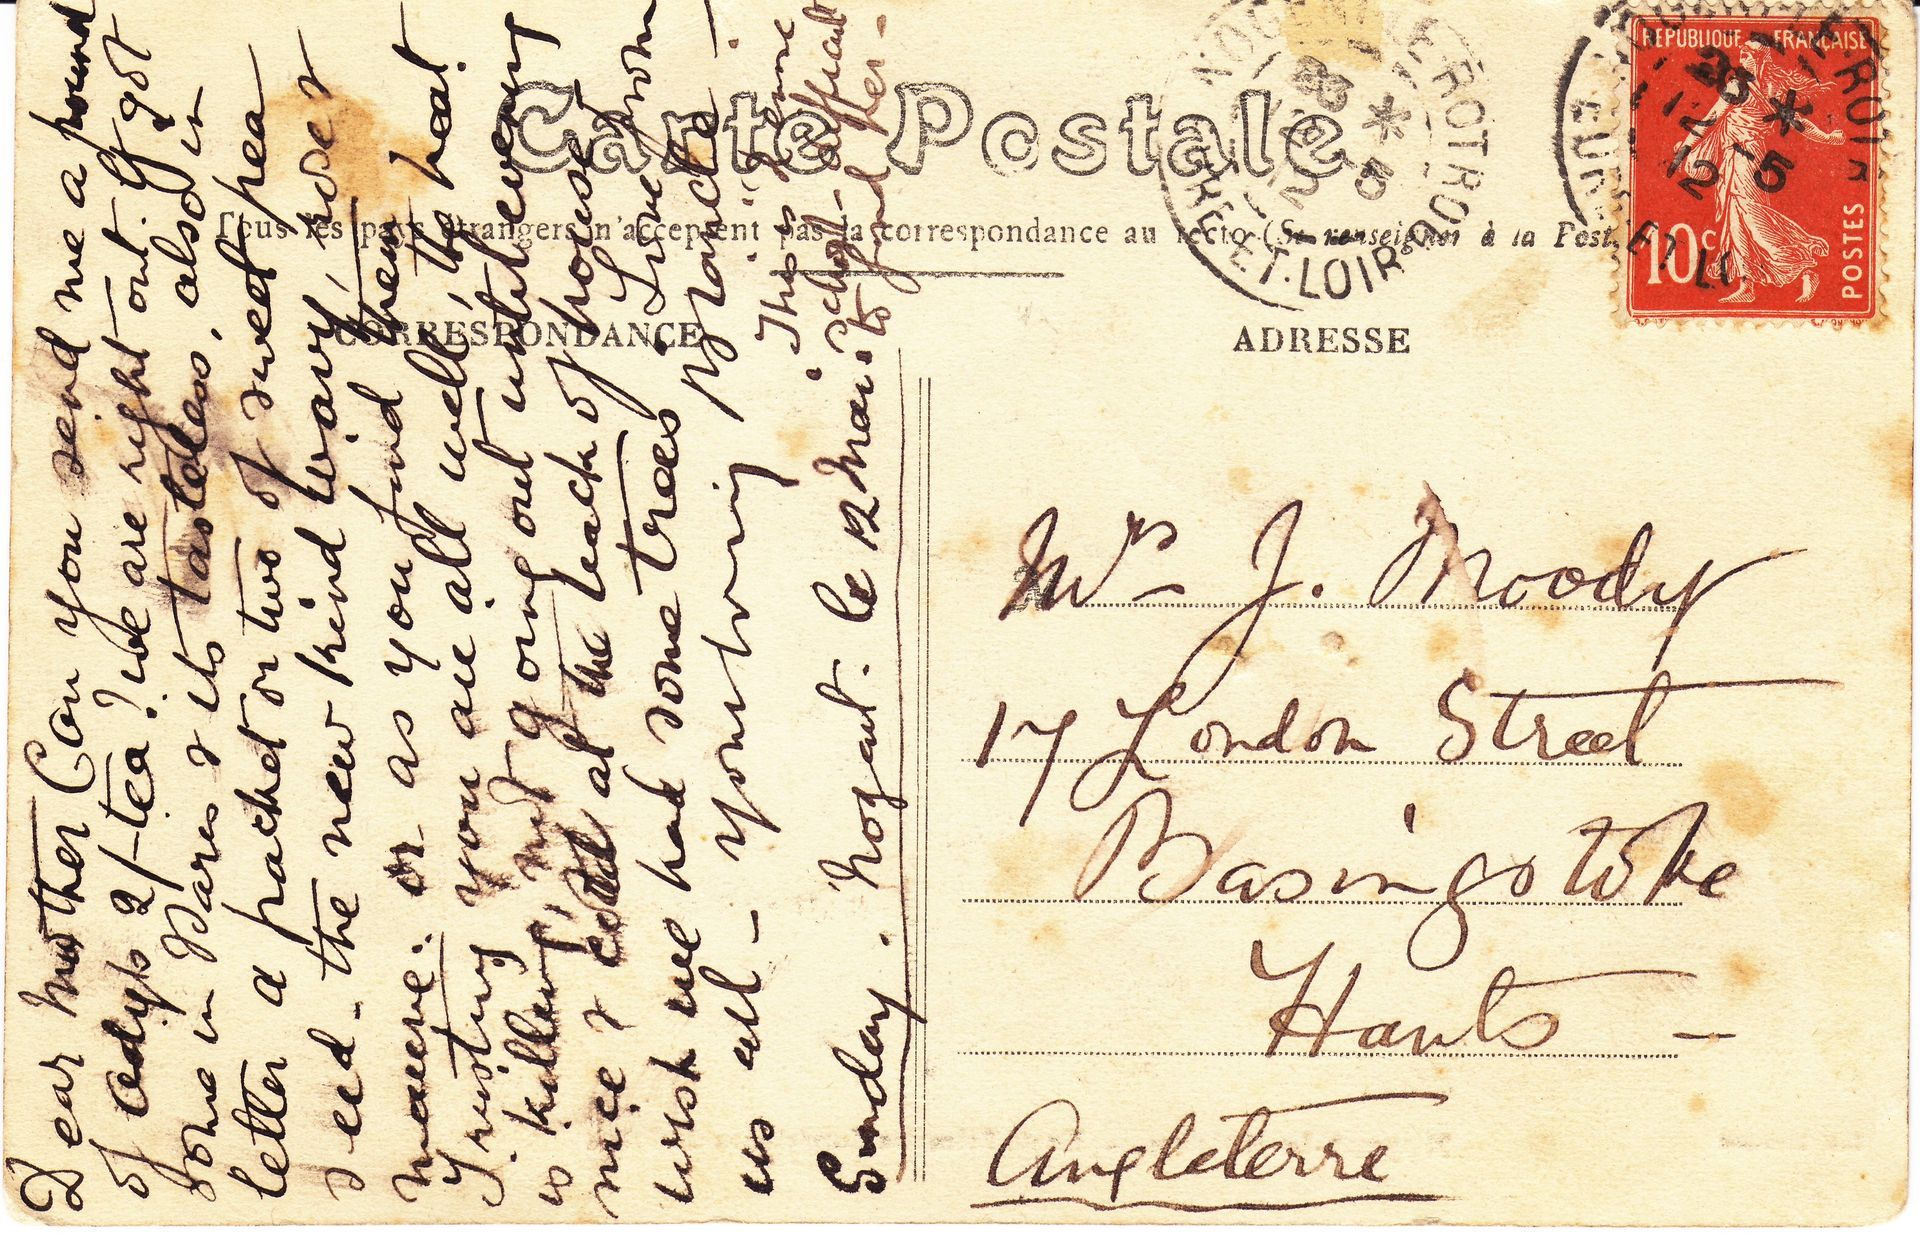 Carte Postale
Tous les pays étrangers n'acceptent pas la correspondance au recto (Se renseigner à la Poste
CORRESPONDANCE
ADRESSE
REPUBLIQUE FRANÇAISE
10c
POSTES
NOGENT-LE-ROTROU
EURE-ET-LOIR
12 -5
NOGENT-LE-ROTROU
EURE-ET-LOIR
12 -5
Dear Mother Can you send me a pound
of 2/- tea? We are right out. I got
some in Paris & its tasteless. also in
letter a packet or two of sweet pea
seed - the new kind wavy, mixed
mauve. or as you find them
Trusting you are all well, the heat
is killing, not going out until evening
nice & cool at the back of house
wish we had some trees. Love from
us all - your loving Blanche -
Sunday. Nogent. le 12 Mai.
This is some
to find her -
Mrs J. Moody
17 London Street
Basingstoke
Hants -
Angleterre